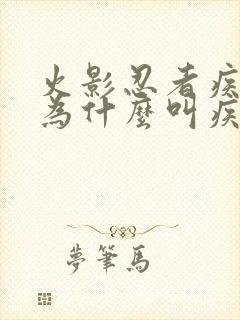 火影忍者疾
為什麼叫疾
夢筆馬